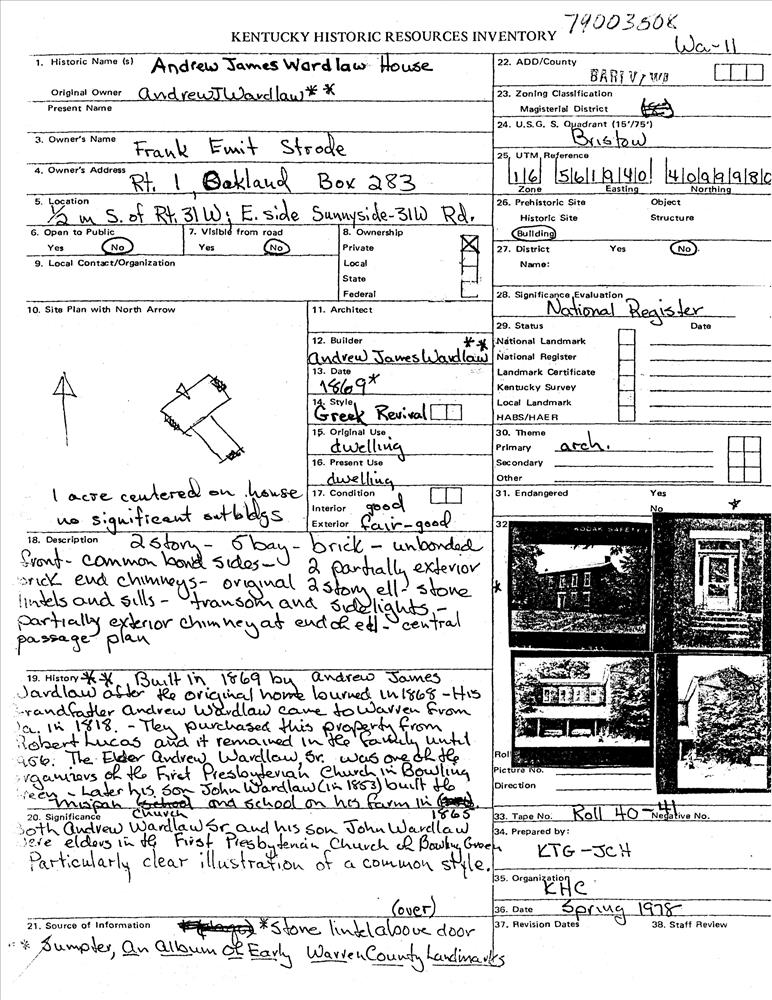 79003508
KENTUCKY HISTORIC RESOURCES INVENTORY
Wa-11
1. Historic Name (s) Andrew James Wardlaw House
Original Owner Andrew J Wardlaw**
Present Name
3. Owner's Name Frank Emit Strode
4. Owner's Address Rt. 1, Oakland Box 283
5. Location 1/2 m S. of Rt. 31W; E. side Sunnyside-31W Rd.
6. Open to Public
Yes No
7. Visible from road
Yes No
8. Ownership
Private
Local
State
Federal
9. Local Contact/Organization
10. Site Plan with North Arrow
1 acre centered on house
no significant outbldgs
11. Architect
12. Builder **
Andrew James Wardlaw
13. Date
1869*
14. Style
Greek Revival
15. Original Use
dwelling
16. Present Use
dwelling
17. Condition
Interior good
Exterior fair-good
18. Description 2 story - 5 bay - brick - unbonded
front - common bond sides - 2 partially exterior
brick end chimneys - original 2 story ell - stone
lintels and sills - transom and sidelights -
partially exterior chimney at end of ell - central
passage plan
19. History ** Built in 1869 by Andrew James
Wardlaw after the original home burned in 1868 - His
Grandfather Andrew Wardlaw came to Warren from
Va. in 1818. - They purchased this property from
Robert Lucas and it remained in the family until
1956. The Elder Andrew Wardlaw Sr. was one of the
organizers of the First Presbyterian Church in Bowling
Green - Later his son John Wardlaw (in 1853) built the
church and school on his farm in
1865
20. Significance
Both Andrew Wardlaw Sr and his son John Wardlaw
were elders in the First Presbyterian Church of Bowling Green
Particularly clear illustration of a common style.
(over)
21. Source of Information *Stone lintel above door
** Sumpter, An Album of Early Warren County Landmarks
22. ADD/County
23. Zoning Classification
Magisterial District
24. U.S.G.S. Quadrant (15'/75')
Bristow
25. UTM Reference
16 561940 409998
Zone Easting Northing
26. Prehistoric Site Object
Historic Site Structure
Building
27. District Yes No
Name:
28. Significance Evaluation
National Register
29. Status Date
National Landmark
National Register
Landmark Certificate
Kentucky Survey
Local Landmark
HABS/HAER
30. Theme
Primary arch.
Secondary
Other
31. Endangered Yes
No
32
KODAK SAFETY
Roll
Picture No.
Direction
33. Tape No. Roll 40-41 Negative No.
34. Prepared by:
KTG-JCH
35. Organization
KHC
36. Date Spring 1978
37. Revision Dates 38. Staff Review